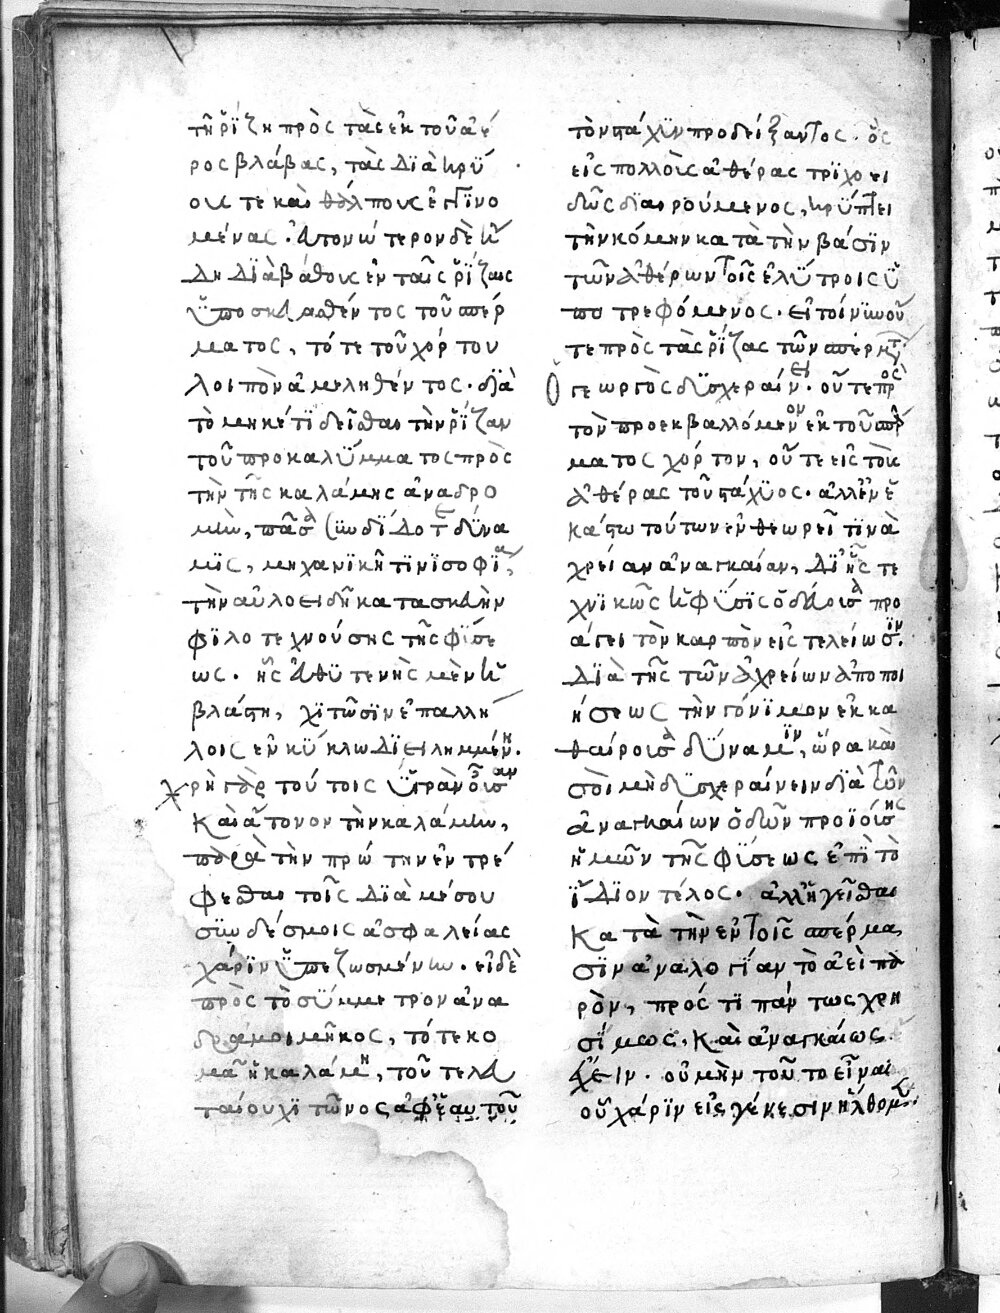 τῇ ῥίζῃ πρὸς τὰς ἐκ τοῦ ἀέ
ρος βλάβας, τὰς διὰ κρύ
ους τε καὶ θάλπους ἐγγινο
μένας. ἀτονώτερον δὲ
ἤδη διὰ βάθους ἐν ταῖς ῥίζαις
ὑποσπαρθέντος τοῦ σπέρ
ματος, τότε τοῦ χόρτου
λοιπὸν ἀμεληθέντος. διὰ
τὸ μηκέτι δεῖσθαι τὴν ῥίζαν
τοῦ προκαλύμματος πρὸς
τὴν τῆς καλάμης ἀναδρο
μὴν, πᾶσαν ἐνδίδοται δύνα
μις, μηχανικῇ τινι σοφίᾳ,
τὴν αὐλοειδῆ κατασκευὴν
φιλοτεχνούσης τῆς φύσε
ως. ἧς εὐθυτενὴς μὲν ἡ
βλάστη, χιτῶσιν ἐπαλλή
λοις ἐν κύκλῳ διειλημμένη.
χρὴ γὰρ τούτοις ὑγρὰν οὖσαν
καὶ ἄτονον τὴν καλάμην,
παρὰ τὴν πρώτην ἐντρέ
φεσθαι τοῖς διὰ μέσου
συνδέσμοις ἀσφαλείας
χάριν ὑπεζωσμένην. εἰ δὲ
πρὸς τὸ σύμμετρον ἀνα
δράμοι μῆκος, τότε κο
μᾷ ἡ καλάμη, τοῦ τελευ
ταίου χιτῶνος ἀφ' ἑαυτοῦ
τὸν στάχυν προδείξαντος. ὃς
εἰς πολλοὺς ἀθέρας τριχοει
δῶς διαιρούμενος, κρύπτει
τὴν κόμην κατὰ τὴν βάσιν
τῶν ἀθέρων τοῖς ἐλύτροις ὑ
ποτρεφόμενος. εἰ τοίνυν οὔ
τε πρὸς τὰς ῥίζας τῶν σπερμάτων
γεωργὸς δυσχεραίνει. οὔτε πρὸς
τὸν προεκβαλλόμενον ἐκ τοῦ σπέρ
ματος χόρτον, οὔτε εἰς τοὺς
ἀθέρας τοῦ στάχυος. ἀλλ' ἐν ἑ
κάστῳ τούτων ἐνθεωρεῖ τινὰ
χρείαν ἀναγκαίαν, δι' ἧς τε
χνικῶς ἡ φύσις ὁδεύουσα προ
άγει τὸν καρπὸν εἰς τελείωσιν.
διὰ τῆς τῶν ἀχρείων ἀποποι
ήσεως τὴν γόνιμον ἐκκα
θαίρουσα δύναμιν, ὥρα καὶ
σοὶ μὴ δυσχεραίνειν διὰ τῶν
ἀναγκαίων ὁδῶν προϊούσης
ἡμῶν τῆς φύσεως ἐπὶ τὸ
ἴδιον τέλος. ἀλλ' ἡγεῖσθαι
κατὰ τὴν ἐν τοῖς σπέρμα
σιν ἀναλογίαν τὸ ἀεὶ πα
ρὸν, πρός τι πάντως χρη
σίμως, καὶ ἀναγκαίως
ἔχειν. οὐ μὴν τοῦτο εἶναι
οὗ χάριν εἰς γένεσιν ἤλθομεν.